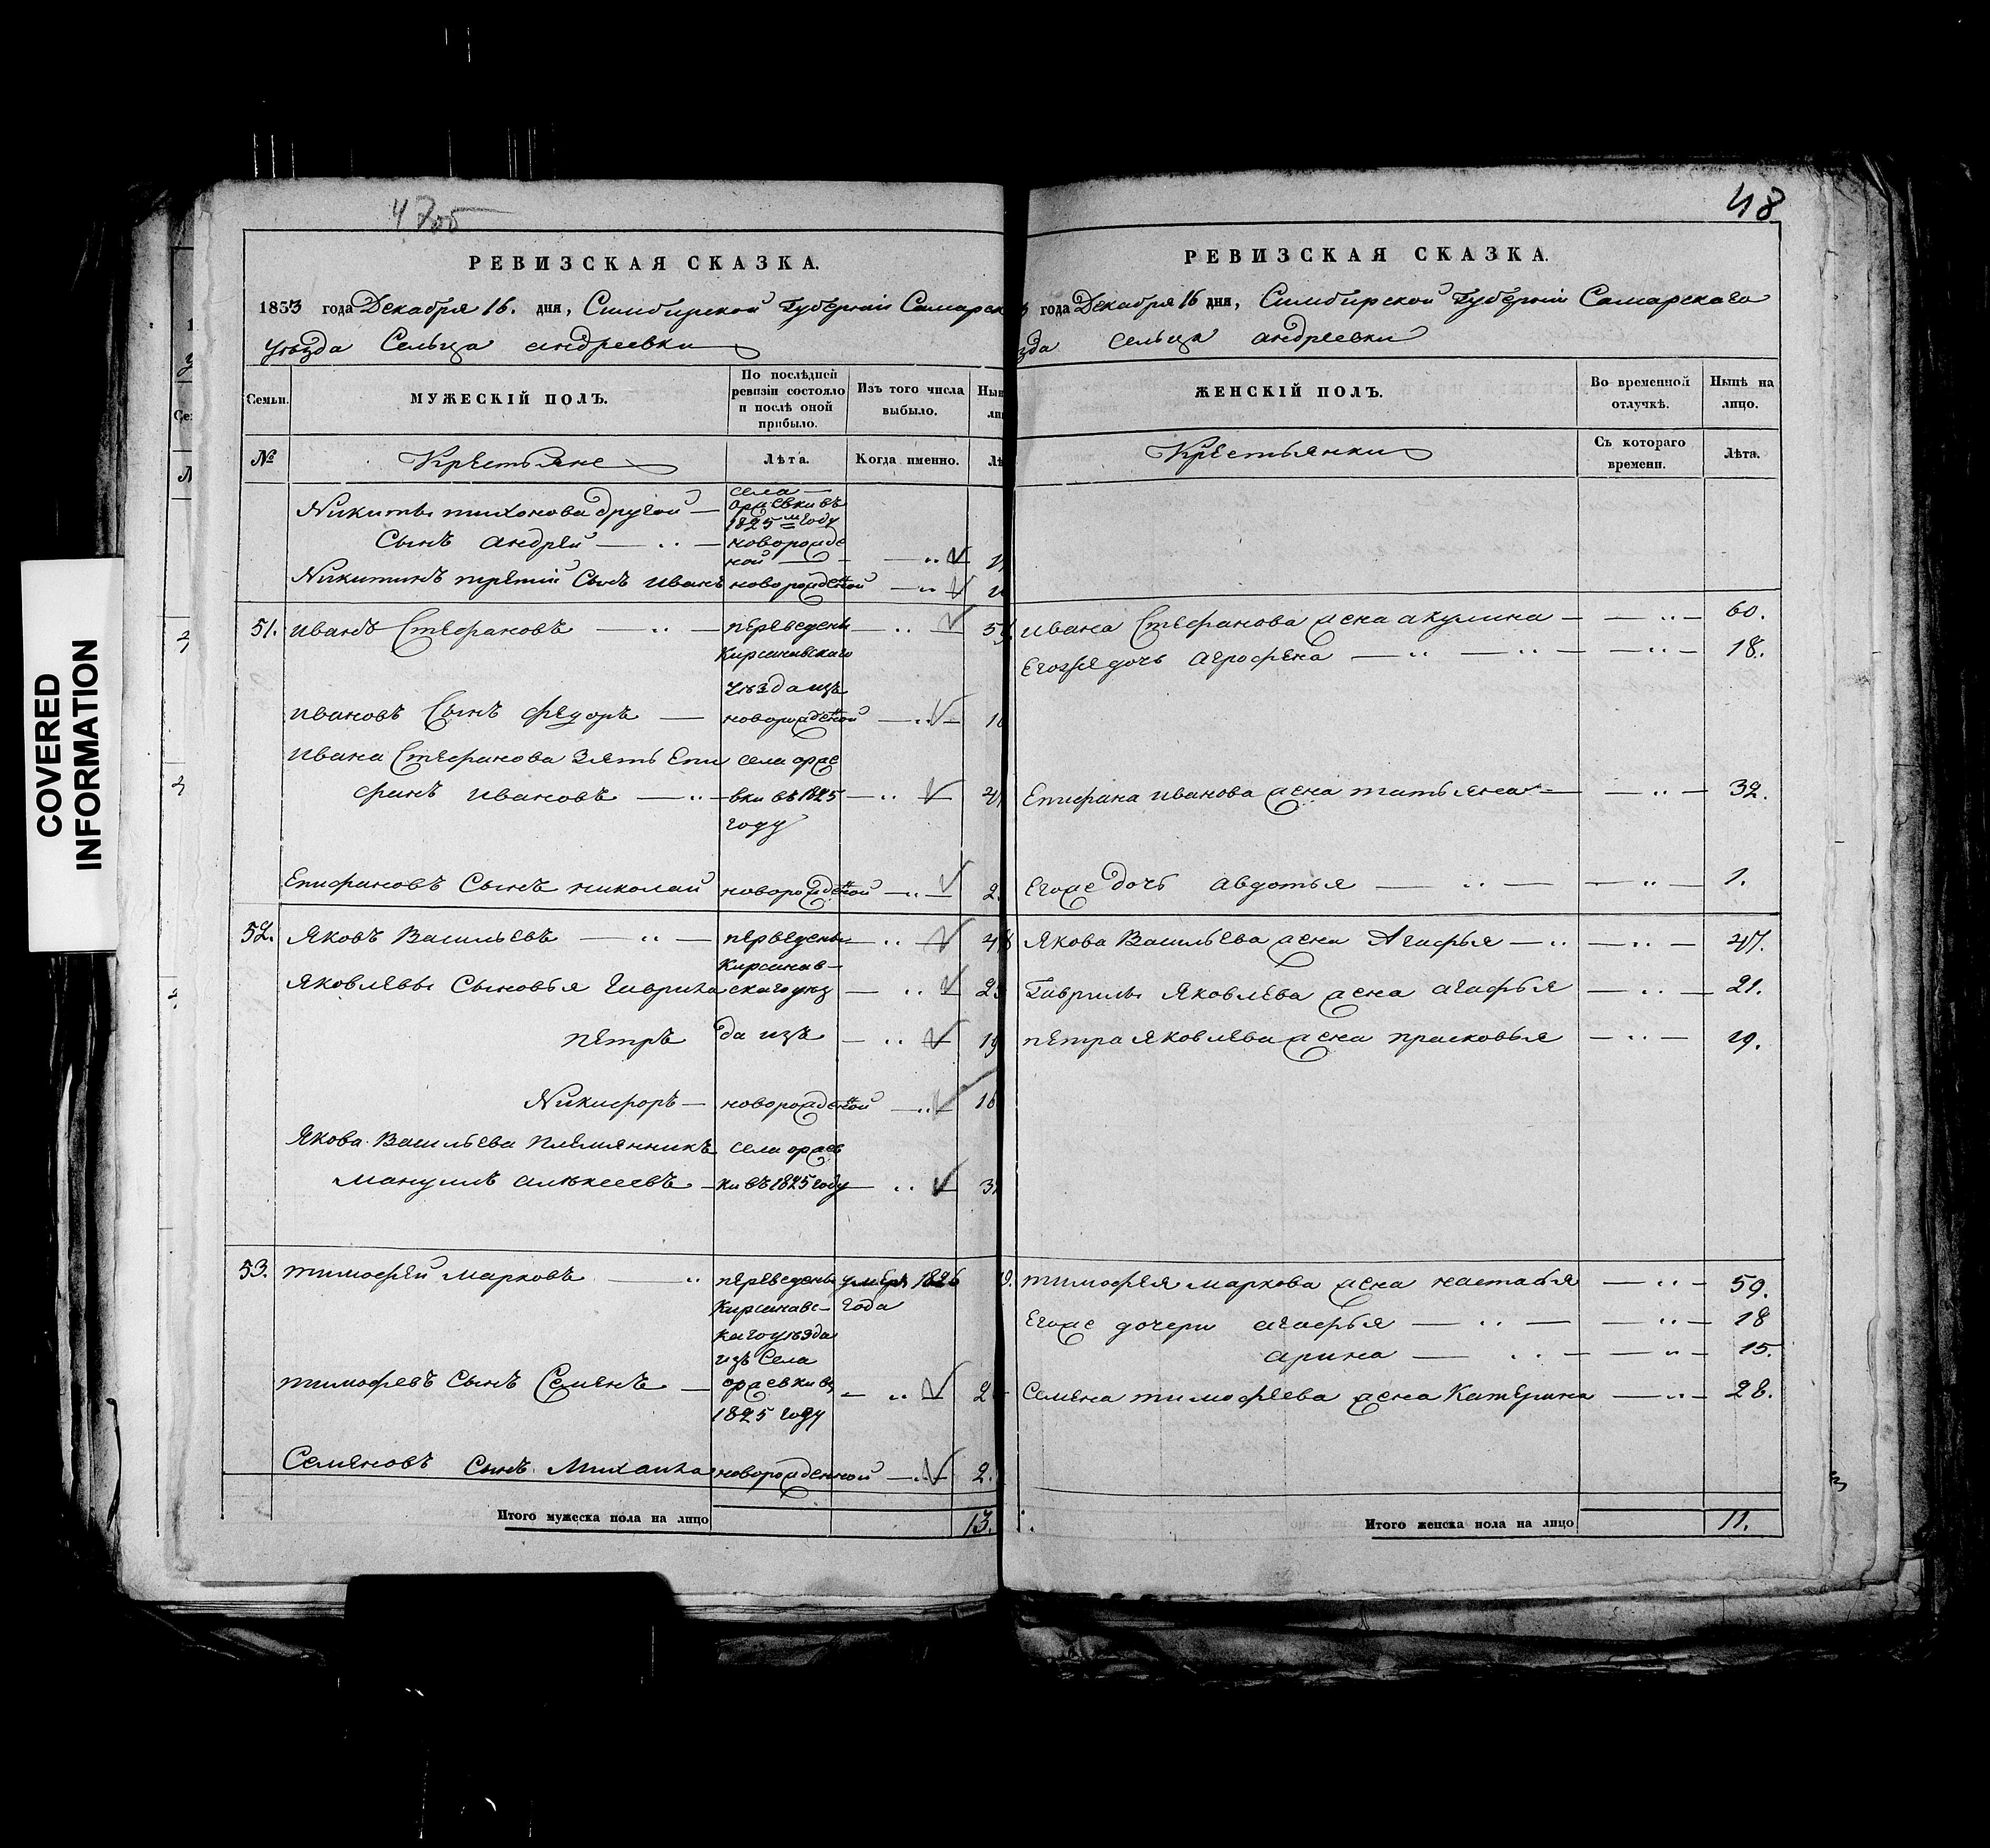 COVERED
INFORMATION
48
РЕВИЗСКАЯ СКАЗКА.
1833 года Декабря 16. дня, Симбирской Губернiи Самарск
уѣзда Сельца андреевки
Семьи.
МУЖЕСКIЙ ПОЛЪ.
По послѣдней
ревизiи состояло
и послѣ оной
прибыло.
Изъ того числа
выбыло.
№
Крестьяне
Лѣта.
Когда именно.
села
ораевки въ
Никиты тихонова другой —
1825м году
Сынъ андрей — " — новорожде
ной
Никитинъ третiй Сынъ иванъ новорожденой — " —
51. иванъ Стефановъ — " — переведены — " —
Кирсановскаго
уѣзда изъ
ивановъ Сынъ федоръ — новорожденой — " —
ивана Стефанова Зять Епи села орае
финъ ивановъ — " — вки въ 1825 — " —
году
Епифановъ Сынъ николай новорожденой — " — 2
52. Яковъ Васильевъ — " — переведены — " — 48
Кирсанов—
Яковлевы Сыновья Гаврила скаго уѣз — " —
Петръ да изъ — " — 19
Никифоръ — новорожденой — " — 16
Якова Васильева племянникъ села ораев
Мануилъ алексеевъ — ки въ 1825 году — " —
53. тимофей марковъ " переведены умеръ 1826
Кирсановс— года
каго уѣзда
изъ Села
тимофеевъ Сынъ Семенъ — ораевки въ — " —
1825 году
Семеновъ Сынъ Михаила новорожденной — " — 2.
Итого мужеска пола на лицо 13.
РЕВИЗСКАЯ СКАЗКА.
года Декабря 16 дня, Симбирской Губернiи Самарскаго
зда сельца андреевки
ЖЕНСКIЙ ПОЛЪ.
Во временной
отлучкѣ.
Нынѣ на
лицо.
Крестьянки
Съ котораго
времени.
Лѣта.
ивана Стефанова жена акулина — — " — 60.
Егоже дочь Агрофена — " — " — — " — 18.
Епифана иванова жена татьяна — — " — 32.
Егоже дочь авдотья — " — — " — 1.
Якова Васильева жена Агафья — " — " — 47.
Гаврилы Яковлева жена агафья — " — 21.
петра яковлева жена прасковья — " — 19.
тимофея маркова жена настасья — " — 59.
Егоже дочери агафья — " — — " — 18
арина — " — — " — 15.
Семена тимофеева жена Катерина — " — 28.
Итого женска пола на лицо 11.